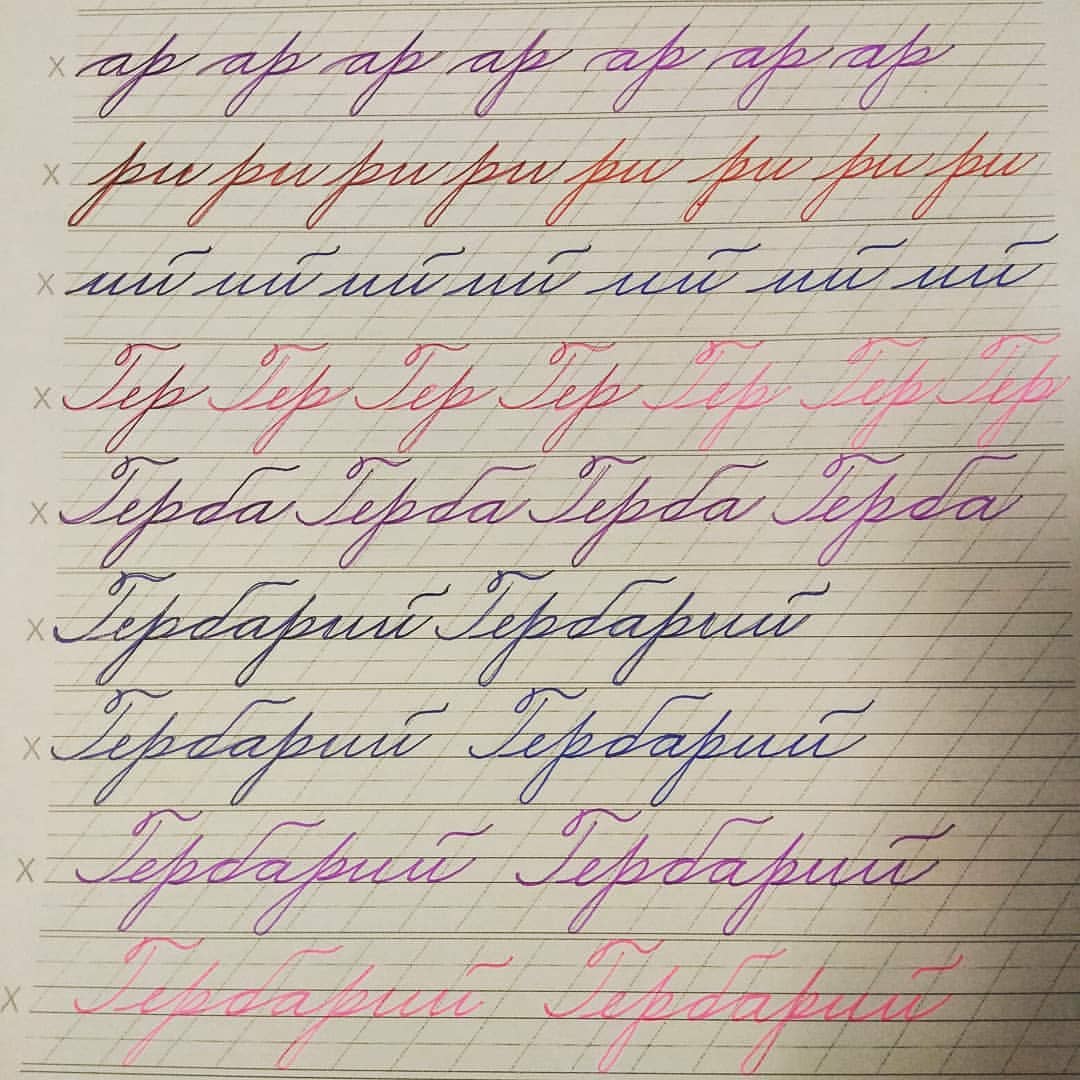 x ар ар ар ар ар ар ар
x ри ри ри ри ри ри ри ри
x ий ий ий ий ий ий ий
x Гер Гер Гер Гер Гер Гер Гер
x Герба Герба Герба Герба
x Гербарий Гербарий
x Гербарий Гербарий
x Гербарий Гербарий
x Гербарий Гербарий